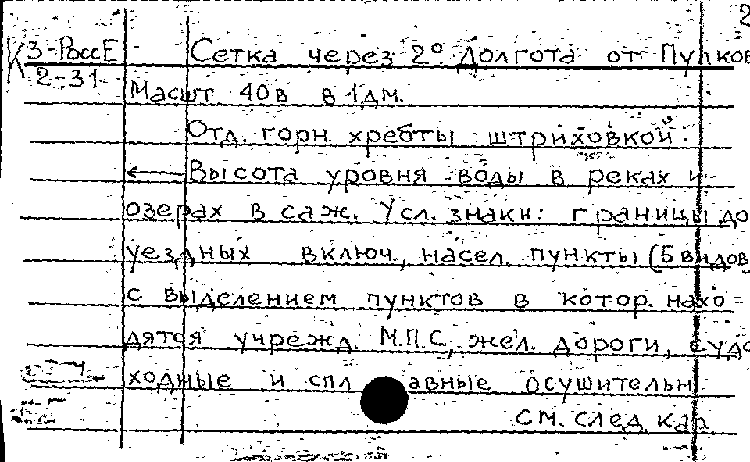 2
К 3-РоссЕ
2-31
Сетка через 2° Долгота от Пулков
Масшт 40в в 1дм.
Отд. горн хребты штриховкой.
Высота уровня воды в реках и
озерах в саж. Усл. знаки: границы до
уездных включ, насел. пункты (5 видов
с выделением пунктов в котор. нахо=
дятся учрежд. М.П.С, жел. дороги, судо
ходные и спл авные осушительн.
см. след. кар